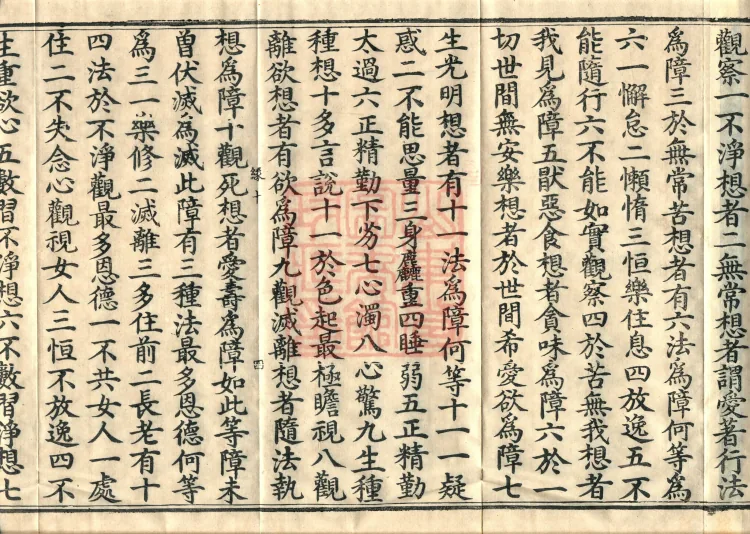 觀察一不淨想者二無常想者謂愛著行法
為障三於無常苦想者有六法為障何等為
六一懈怠二懶惰三恒樂住息四放逸五不
能隨行六不能如實觀察四於苦無我想者
我見為障五猒惡食想者貪味為障六於一
切世間無安樂想者於世間希愛欲為障七
生光明想者有十一法為障何等十一一疑
惑二不能思量三身麤重四睡弱五正精勤
太過六正精勤下劣七心濁八心驚九生種
種想十多言說十一於色起最極瞻視八觀
離欲想者有欲為障九觀滅離想者隨法執
十 四
想為障十觀死想者愛壽為障如此等障未
曾伏滅為滅此障有三種法最多恩德何等
為三一樂修二滅離三多住前二長老有十
四法於不淨觀最多恩德一不共女人一處
住二不失念心觀視女人三恒不放逸四不
生重欲心五數習不淨想六不數習淨想七